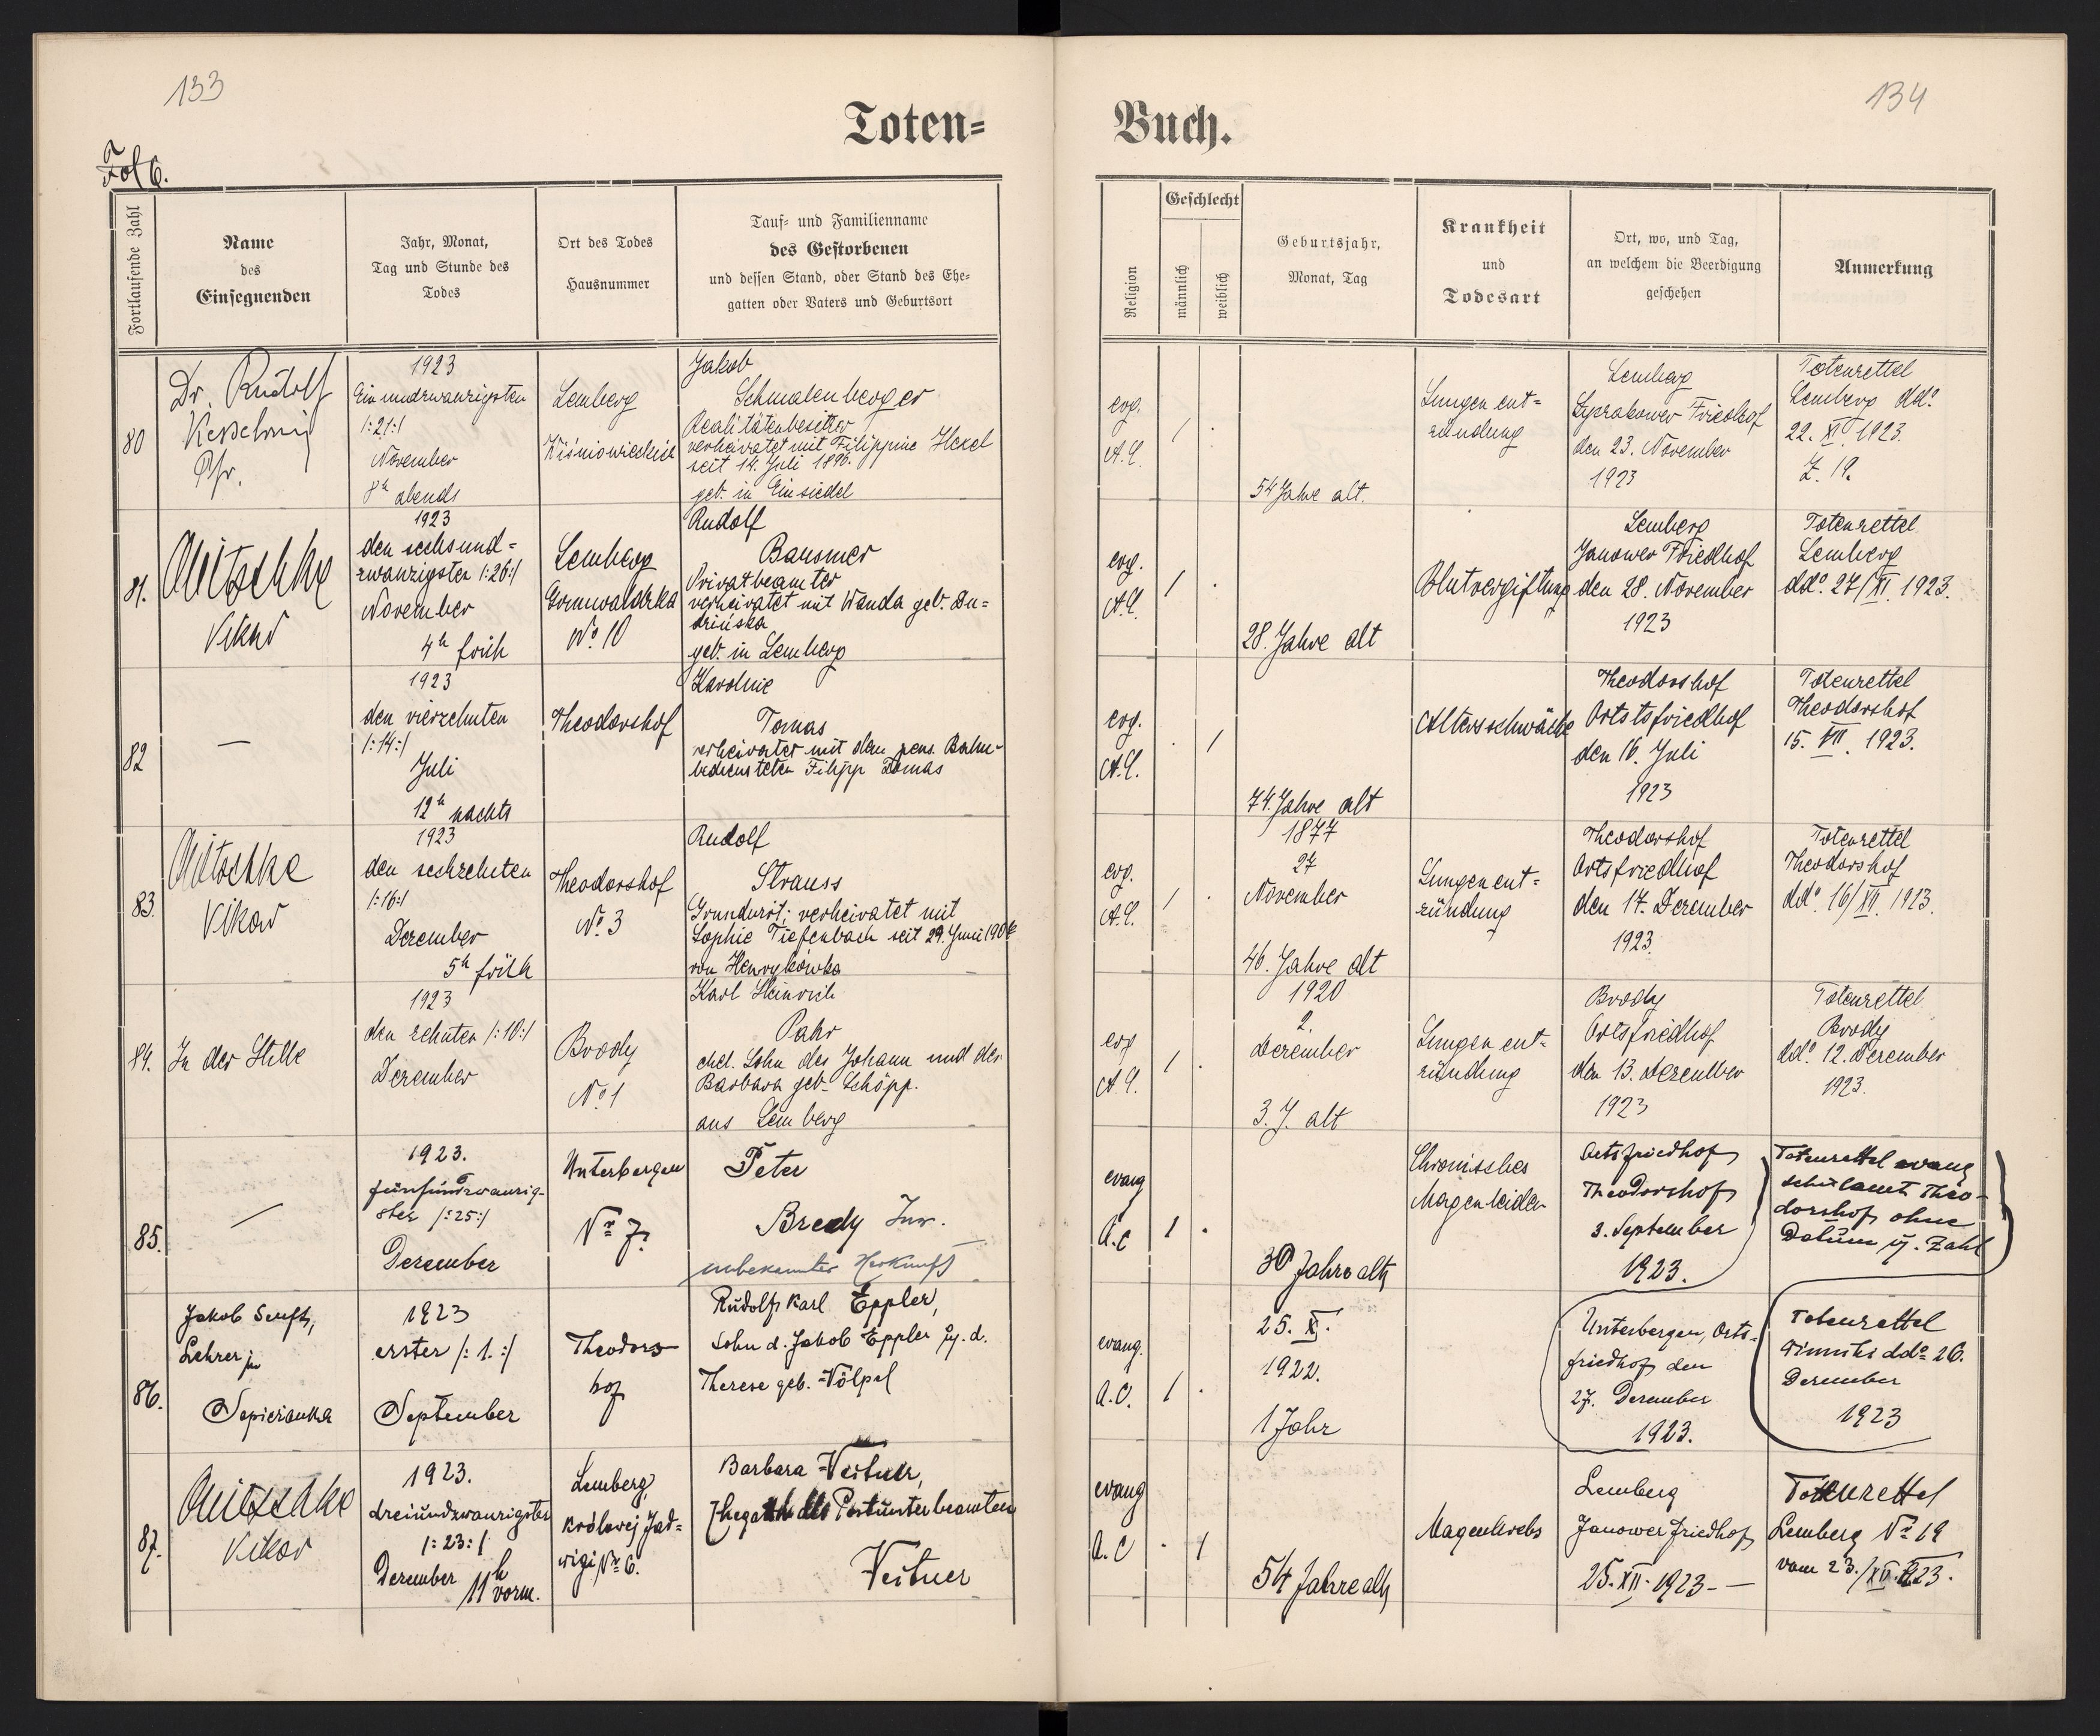 133
134
Toten=
Buch.
Fol 6.
Fortlaufende Zahl
Name
des
Einsegnenden
Jahr, Monat,
Tag und Stunde des
Todes
Ort des Todes
Hausnummer
Tauf- und Familienname
des Gestorbenen
und dessen Stand, oder Stand des Ehe-
gatten oder Vaters und Geburtsort
Religion
Geschlecht
männlich
weiblich
Geburtsjahr,
Monat, Tag
Krankheit
und
Todesart
Ort, wo, und Tag,
an welchem die Beerdigung
geschehen
Anmerkung
80
Dr. Rudolf
Kesselring
Pfr.
1923
Einundzwanzigsten
/:21:/
November
8h abends
Lemberg
Jakob
Schmalenberger
Realitätenbesitzer
verheiratet mit Filippine Hexel
seit 14. Juli 1896.
geb. in Einsiedel
evg.
A.C.
/ .
54 Jahre alt.
Lungenent=
zündung
Lemberg
Friedhof
den 23. November
1923
Totenzettel
Lemberg ddo
22. XI. 1923.
Z. 19.
81.
Mitschke
Vikar
1923
den sechsund=
zwanzigsten /:26:/
November
4h früh
Lemberg
Grunwaldzka
No. 10
Rudolf
Bausmer
Privatbeamter
verheiratet mit Wanda geb. Du=
drińska
geb. in Lemberg
evg.
A.C.
/ .
28. Jahre alt
Blutvergiftung
Lemberg
Janower Friedhof
den 28. November
1923
Totenzettel
Lemberg
ddo. 27/XI. 1923.
82
—
1923
den vierzehnten
/:14:/
Juli
12h nachts
Theodorshof
Karoline
Tomas
verheiratet mit dem pens. Bahn-
bediensteten Filipp Tomas
evg.
A.C.
. /
74. Jahre alt
Altersschwäche
Theodorshof
Ortstsfriedhof
den 16. Juli
1923
Totenzettel
Theodorshof
15. VII. 1923.
83.
Mitschke
Vikar
1923
den sechzehnten
/:16:/
Dezember
5h früh
Theodorshof
No. 3
Rudolf
Strauss
Grundwirt; verheiratet mit
Sophie Tiefenbach seit 29. Juni
von Henrykówka
evg.
A.C.
/ .
1877
27
November
46. Jahre alt
Lungenent=
zündung
Theodorshof
Ortsfriedhof
den 17. Dezember
1923.
Totenzettel
Theodorshof
ddo. 16/XII. 1923.
84.
In der Stille
1923
den zehnten /:10:/
Dezember
Brody
No. 1
Karl Heinrich
Pahr
ehel. Sohn des Johann und der
Barbara geb. Schöpp.
aus Lemberg
evg
A.C.
/ .
1920
2.
Dezember
3. J. alt
Lungenent=
zündung
Brody
Ortsfriedhof
den 13. Dezember
1923
Totenzettel
Brody
ddo. 12. Dezember
1923.
85.
—
1923.
fünfundzwanzig-
ster /:25:/
Dezember
Unterbergen
Nr 7.
Peter
Bredy Inw.
unbekannter Herkunft
evang
A.C
1 .
30 Jahre alt
Chronisches
Magenleiden
Ortsfriedhof
Theodorshof
3. September
1923.
Totenzettel evang
Schulamt Theo-
dorshof ohne
Datum u. Zahl
86.
Jakob Senft,
Lehrer in
Sapieżanka
1923
erster /: 1. :/
September
Theodors
hof
Rudolf Karl Eppler,
Sohn d. Jakob Eppler u. d.
Therese geb. Völpel
evang.
A.C.
1 .
25. X.
1922.
1 Jahr
Unterbergen, Orts-
friedhof den
27. Dezember
1923.
Totenzettel
Winniki ddo 26.
Dezember
1923
87.
Mitschke
Vikar
1923.
dreiundzwanzigster
/:23:/
Dezember 11h vorm.
Lemberg,
Królovej Jad=
wigi Nr 6.
Barbara Veituer,
Ehegattin des Postunterbeamten
Veituer
evang
A.C
. 1
54 Jahre alt
Magenkrebs
Lemberg
Janower Friedhof
25. XII. 1923-—
Totenzettel
Lemberg Nr 19
vom 23./XII. 1923.